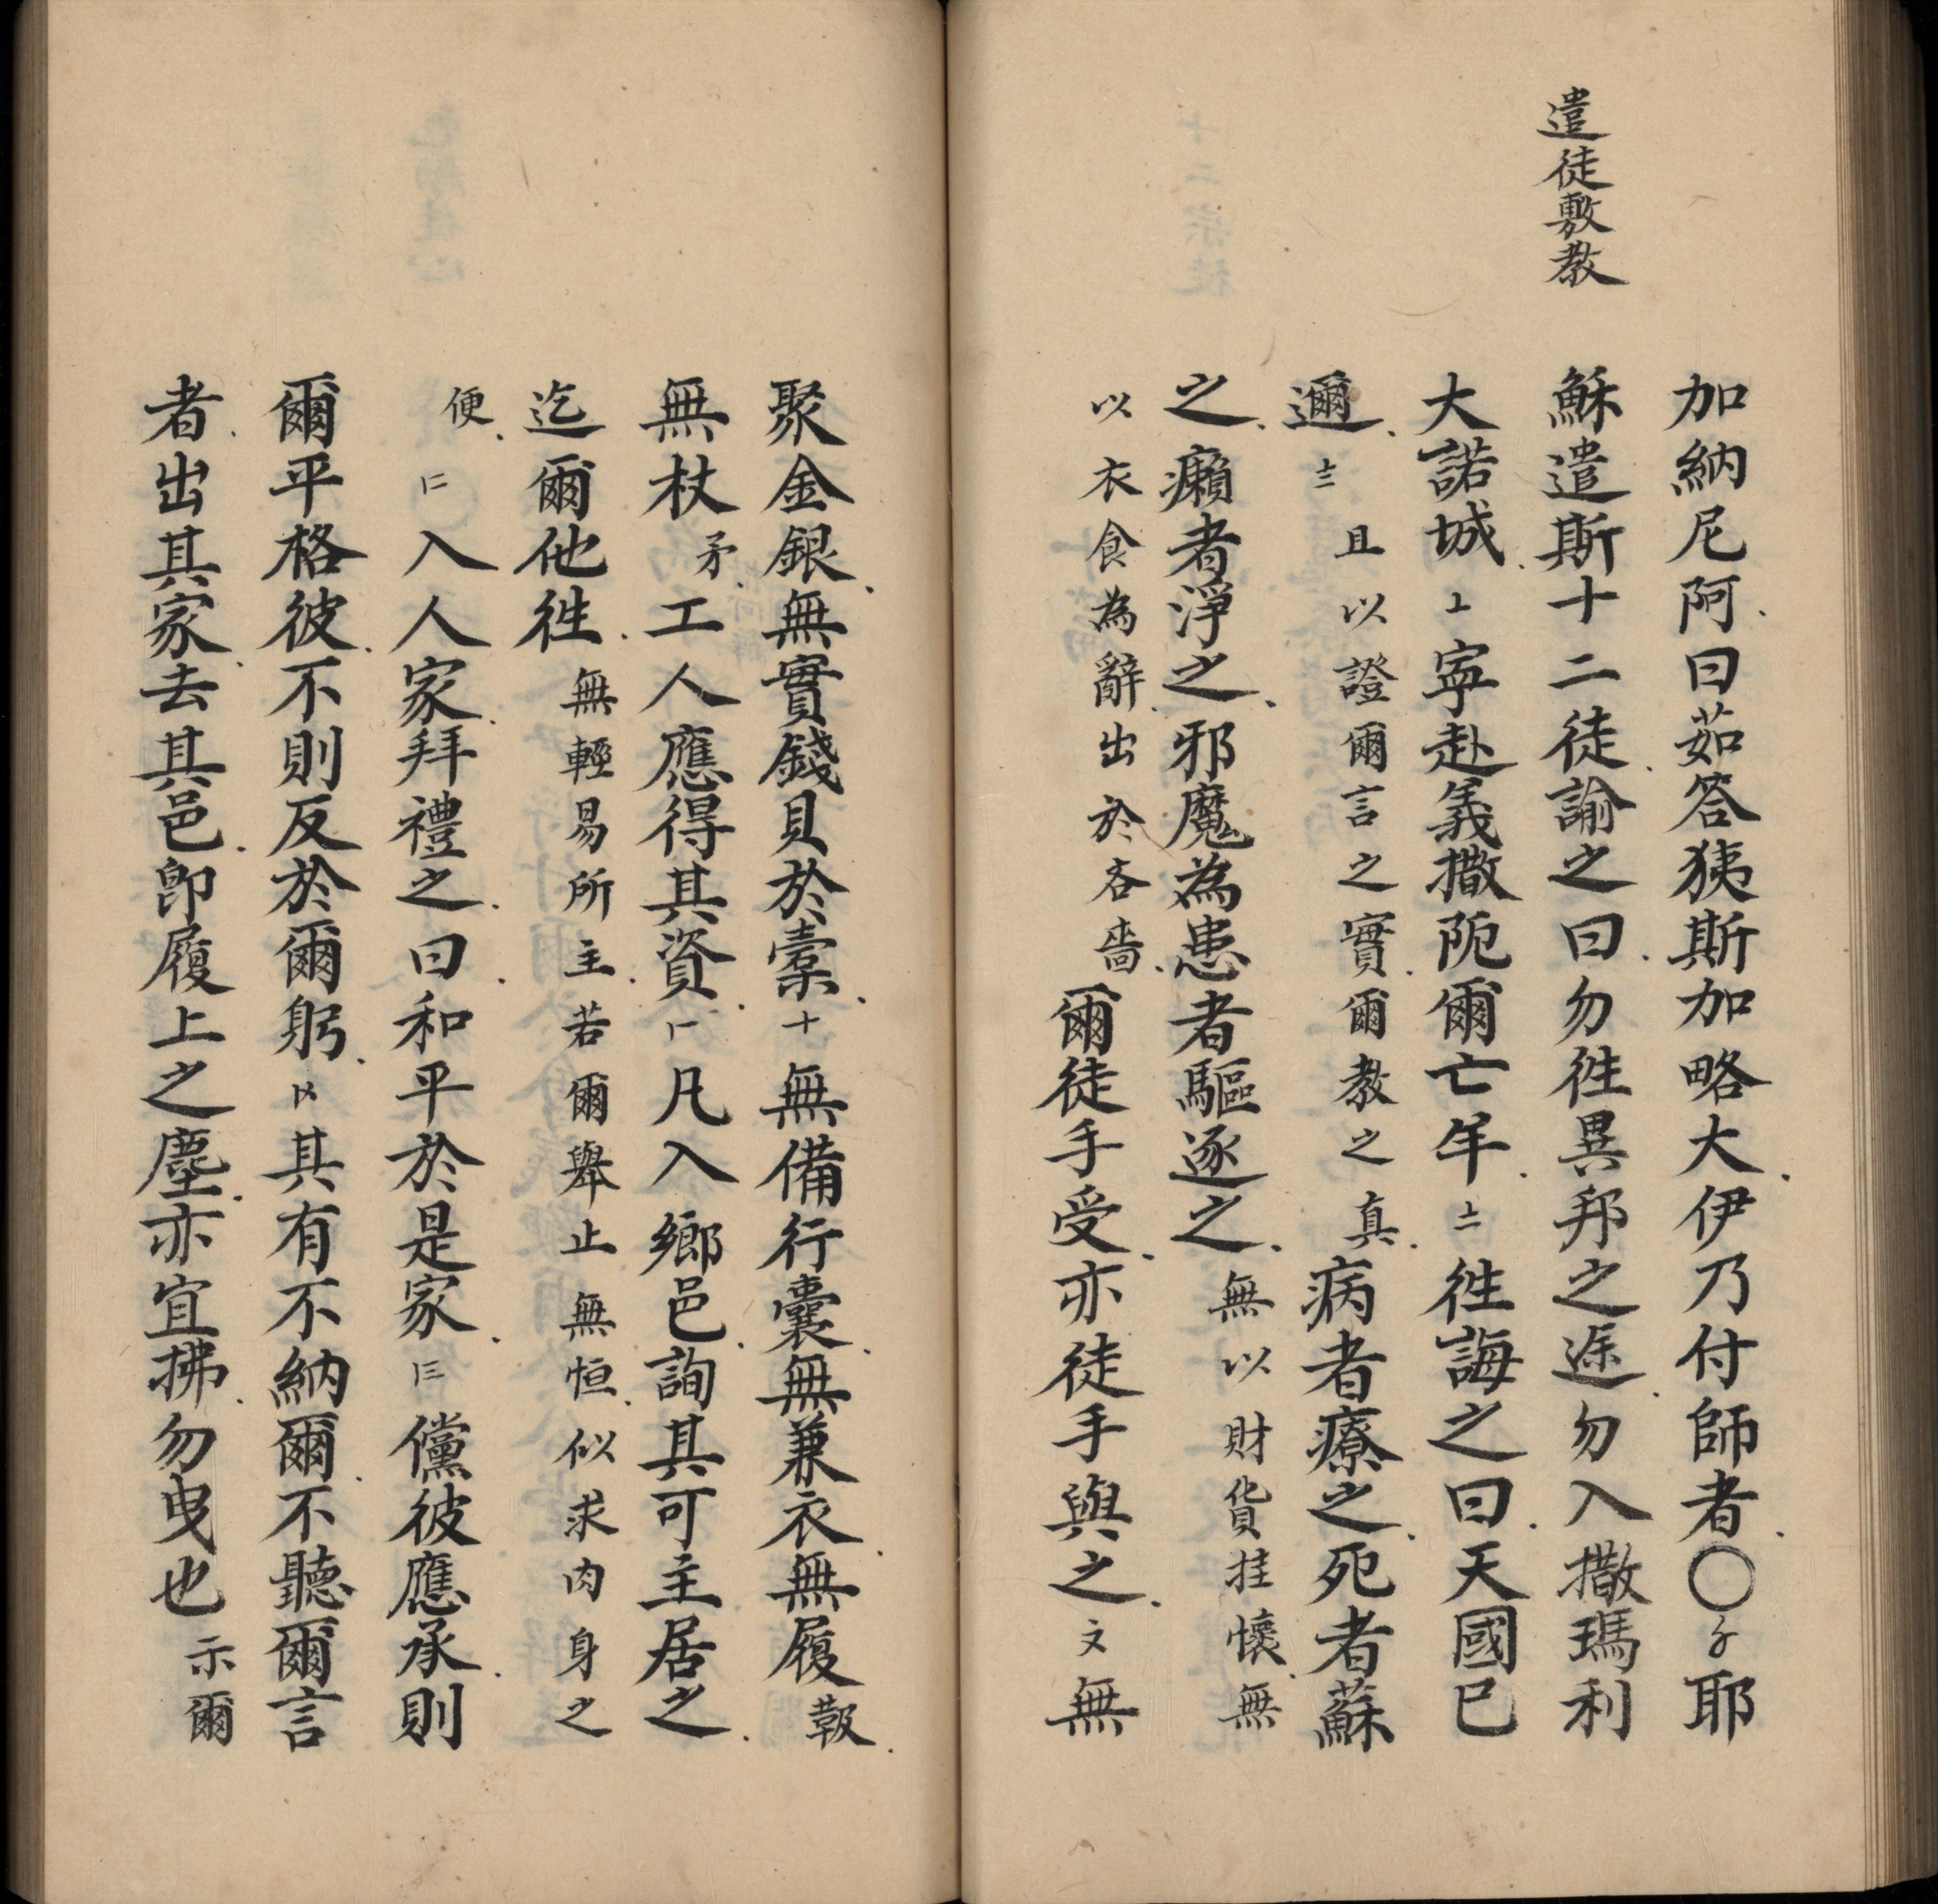 遣徒敷教
加納尼阿曰茹答狭斯加略大伊乃付師者〇耶
穌遣斯十二徒諭之曰勿徃異邦之途勿入撒瑪利
大諾城寜赴義撒阨爾亡羊徃誨之曰天國已
邇且以證爾言之實爾教之真病者療之死者蘇
之癩者淨之邪魔為患者驅逐之無以財貨挂懐無
以衣食為辭出於吝嗇爾徒手受亦徒手與之無
聚金銀無實錢貝於橐十無備行囊無兼衣無履報
無杖矛工人應得其資凡入鄉邑詢其可主居之
迄爾他徃無輕易所主若爾舉止無恒似求肉身之
便入人家拜禮之曰和平於是家儻彼應承則
爾平格彼不則反於爾躬其有不納爾不聽爾言
者出其家去其邑卽履上之塵亦宜拂勿曳也示爾